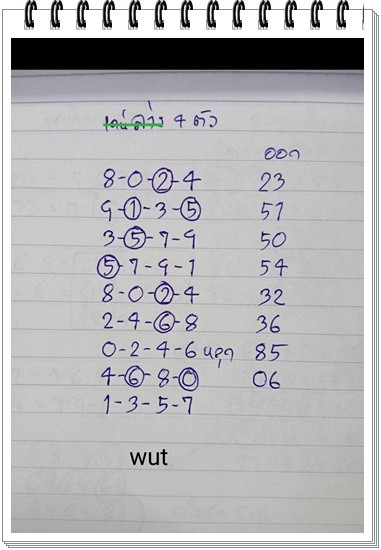 เด่นล่าง 4 ตัว
ออก
8-0-2-4 23
9-1-3-5 51
3-5-7-9 50
5-7-9-1 54
8-0-2-4 32
2-4-6-8 36
0-2-4-6 หลุด 85
4-6-8-0 06
1-3-5-7
wut